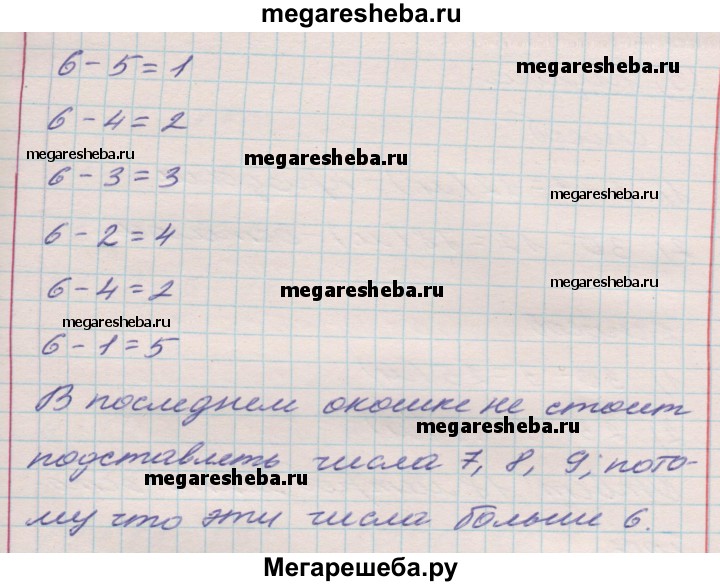 megaresheba.ru
6 - 5 = 1
megaresheba.ru
6 - 4 = 2
megaresheba.ru
megaresheba.ru
6 - 3 = 3
megaresheba.ru
6 - 2 = 4
megaresheba.ru
6 - 4 = 2
megaresheba.ru
megaresheba.ru
6 - 1 = 5
В последнем окошке не стоит
megaresheba.ru
подставлять числа 7, 8, 9, пото-
megaresheba.ru
му что эти числа больше 6.
Мегарешеба.ру